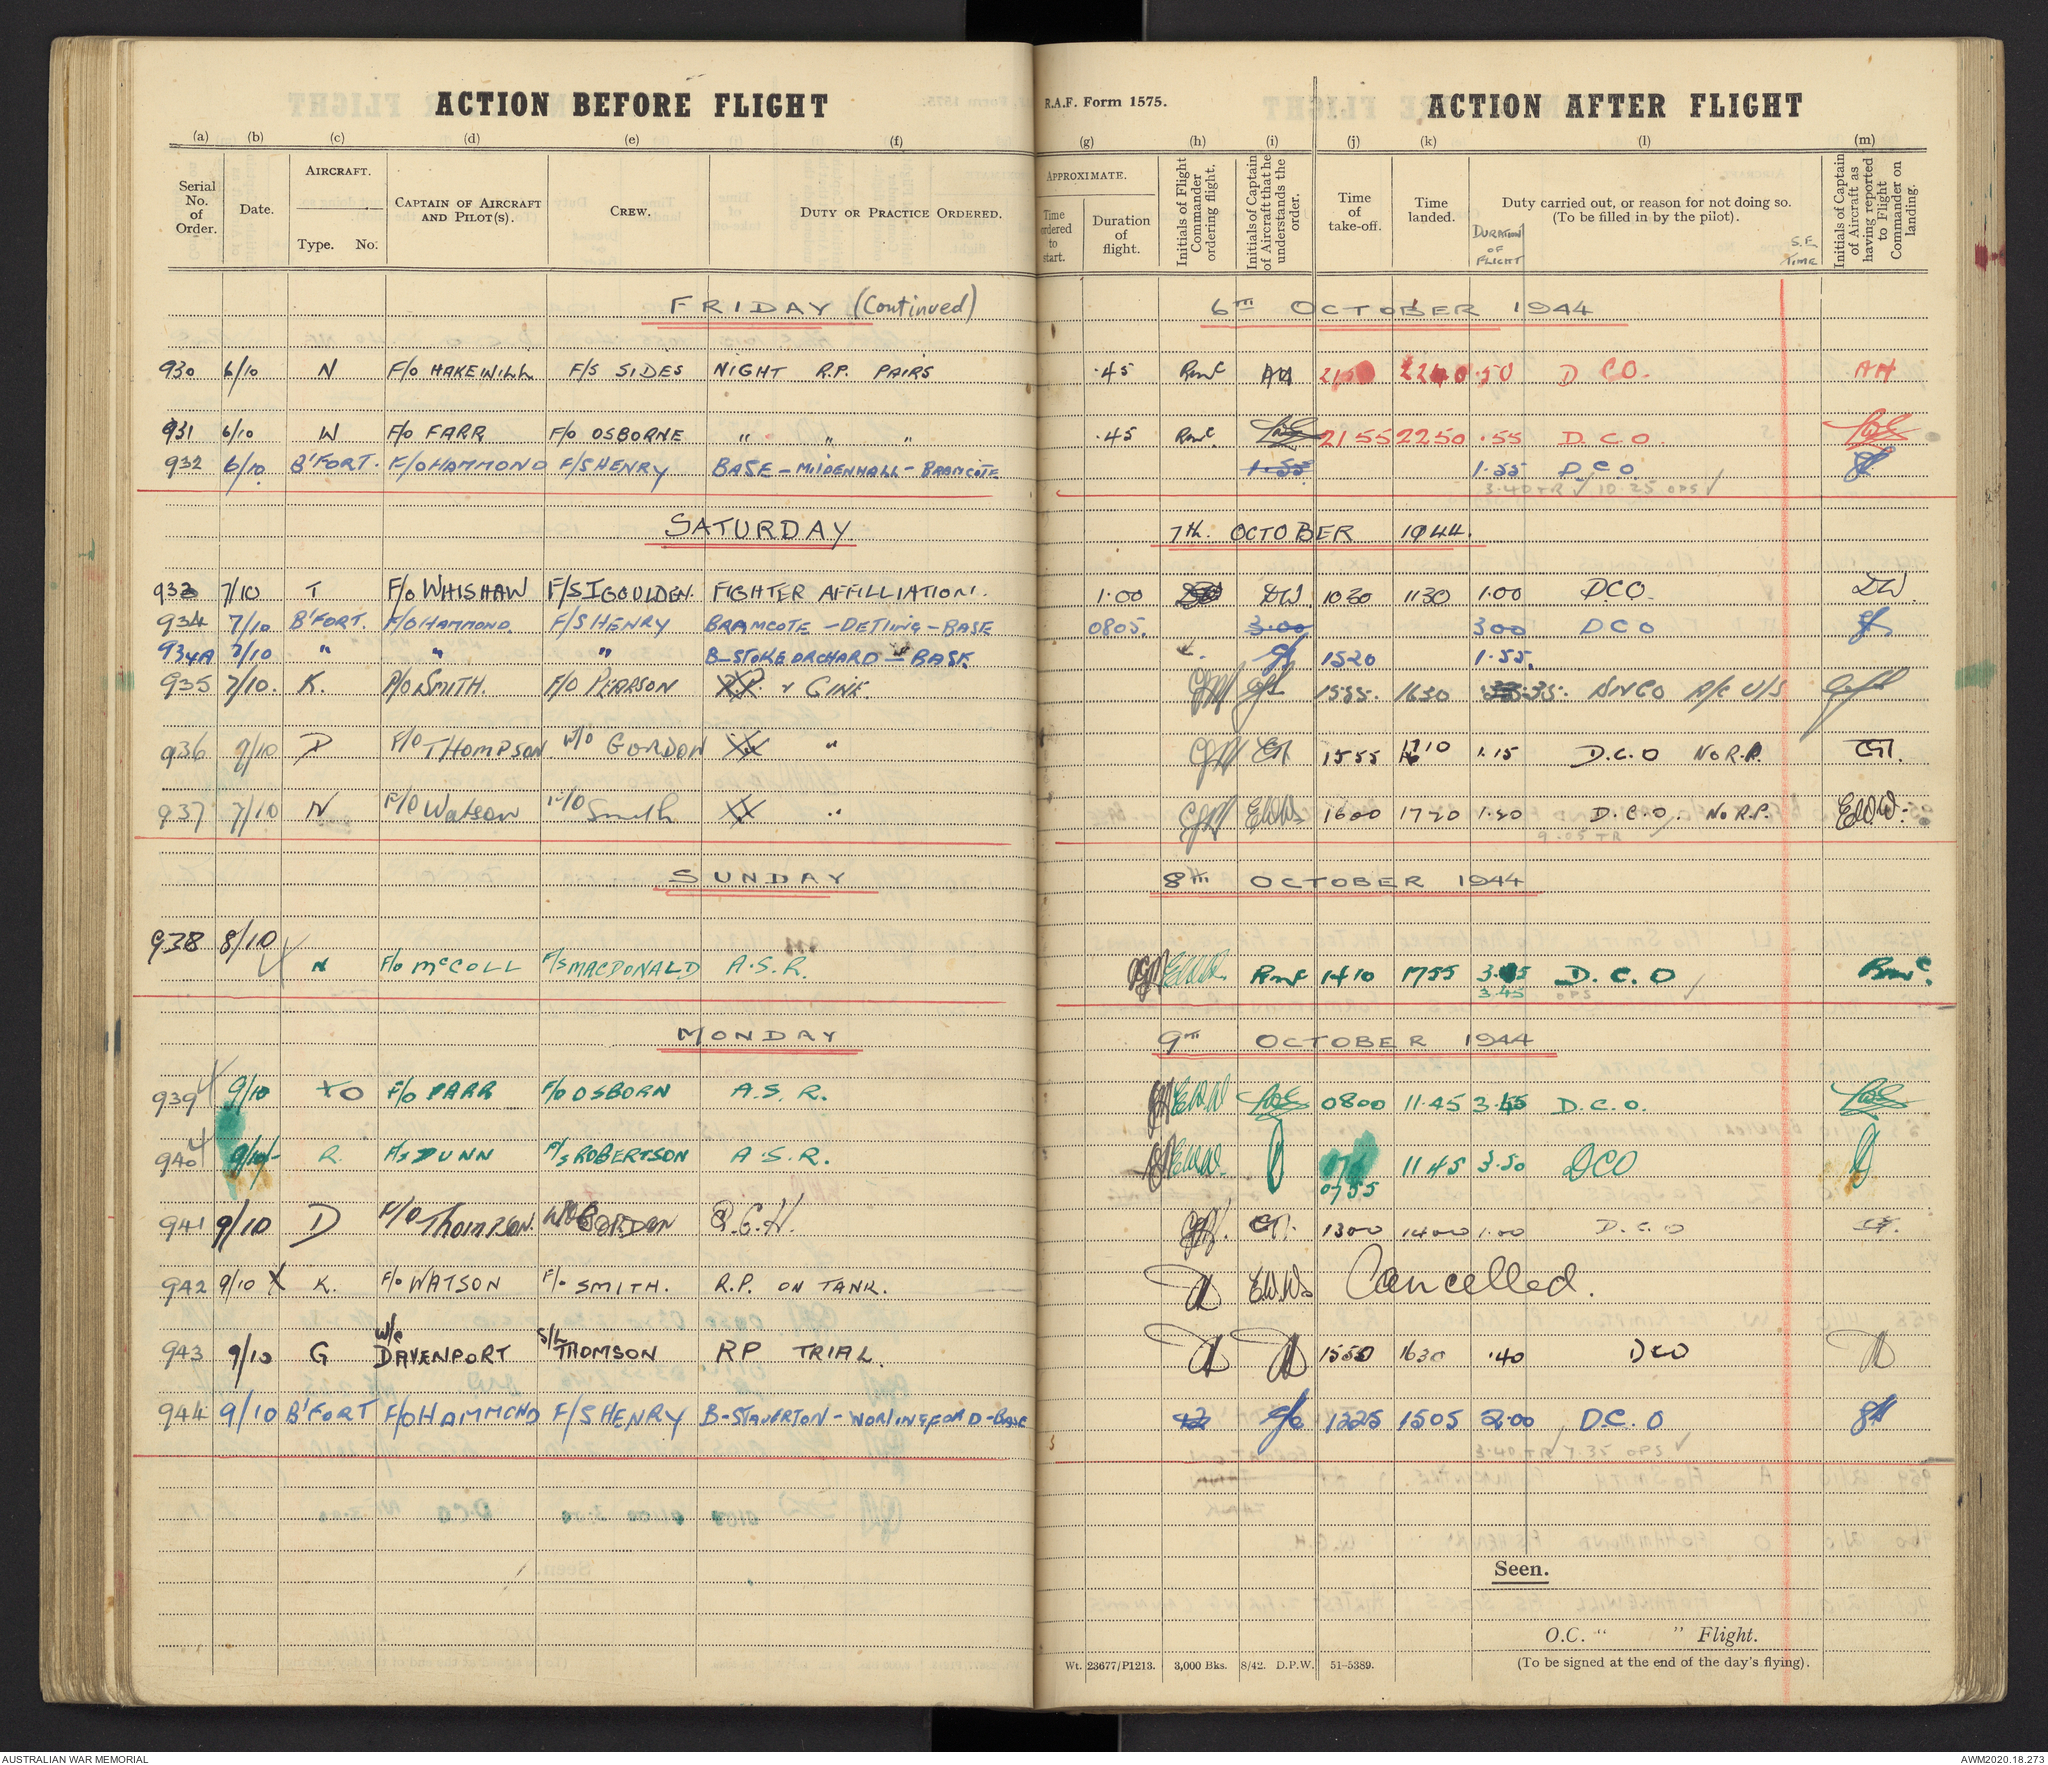 ACTION BEFORE FLIGHT
R.A.F. Form 1575.
ACTION AFTER FLIGHT
(a) (b) (c) (d) (e) (f) (g) (h) (i) (j) (k) (l) (m)
Serial No. of Order.
Date.
AIRCRAFT.
Type. No.
CAPTAIN OF AIRCRAFT AND PILOT(S).
CREW.
DUTY OR PRACTICE ORDERED.
APPROXIMATE.
Time ordered to start.
Duration of flight.
Initials of Flight Commander ordering flight.
Initials of Captain of Aircraft that he understands the order.
Time of take-off.
Time landed.
Duty carried out, or reason for not doing so.
(To be filled in by the pilot).
DURATION OF FLIGHT
S.E. TIME
Initials of Captain of Aircraft as having reported to Flight Commander on landing.
FRIDAY (Continued) 6TH OCTOBER 1944
930 6/10 N F/O HAKEWILL F/S SIDES NIGHT R.P. PAIRS .45 RMcC AH 2150 2240 .50 D CO. AH
931 6/10 W F/O FARR F/O OSBORNE " " " .45 RMcC 2155 2250 .55 D.C.O.
932 6/10 B'FORT. F/O HAMMOND F/S HENRY BASE - MILDENHALL - BRAMCOTE 1.55 1.55 D.C.O.
3.40 TR ✓ 10.25 OPS ✓
SATURDAY 7th. OCTOBER 1944.
933 7/10 T F/O WHISHAW F/SIGOULDEN. FIGHTER AFFILLIATION. 1.00 DW. 1030 1130 1.00 DCO. DW.
934 7/10 B'FORT. F/O HAMMOND. F/S HENRY BRAMCOTE - DETling - BASE 0805. 3.00 300 DCO
934A 7/10 " " " B-STOKE ORCHARD - BASE 1520 1.55.
935 7/10. K. P/O SMITH. F/O PEARSON R.P. & CINE 1555. 1630 .35. DNCO A/C U/S
936 7/10 D P/O THOMPSON. W/O GORDON " 1555 1710 1.15 D.C.O No R.P. CT.
937 7/10 N F/O Watson F/O Smith " EWW. 1600 1720 1.20 D.C.O. No R.P. EWW.
9.05 TR ✓
SUNDAY 8TH OCTOBER 1944
938 8/10 N F/O McCOLL F/S MACDONALD A.S.R. EWW. RMcC 1410 1755 3.45 D.C.O RMcC.
3.45 OPS ✓
MONDAY 9TH OCTOBER 1944
939 9/10 O F/O FARR F/O OSBORN A.S.R. EWW 0800 11.45 3.45 D.C.O.
940 9/10 R F/S DUNN F/S ROBERTSON A.S.R. EWW. 0755 1145 3.50 DCO
941 9/10 D P/O Thompson. W/O GORDON Q.G.H. CT. 1300 1400 1.00 D.C.O CT.
942 9/10 X K. F/O WATSON F/O SMITH. R.P. ON TANK. E.W.W. Cancelled.
943 9/10 G W/C DAVENPORT S/L THOMSON RP TRIAL. 1550 1630 .40 DCO
944 9/10 B'FORT F/O HAMMOND F/S HENRY B-STAVERTON - WORLINGFORD - BASE 1325 1505 2.00 D.C.O
3.40 TR ✓ 7.35 OPS ✓
Seen.
O.C. " " Flight.
(To be signed at the end of the day's flying).
Wt. 23677/P1213. 3,000 Bks. 8/42. D.P.W. 51-5389.
AUSTRALIAN WAR MEMORIAL
AWM2020.18.273